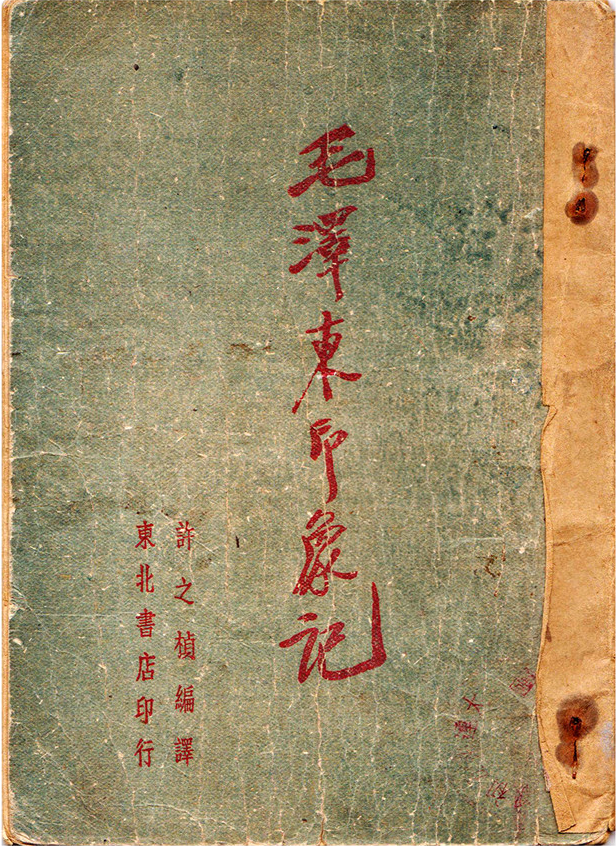 毛澤東印象記
許之楨編譯
東北書店印行